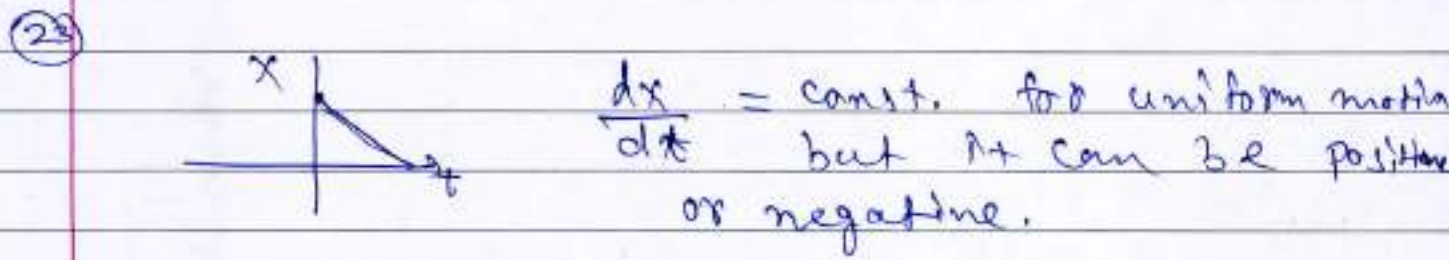 23
x dx/dt = const. for uniform motion
but it can be positive
t
or negative.